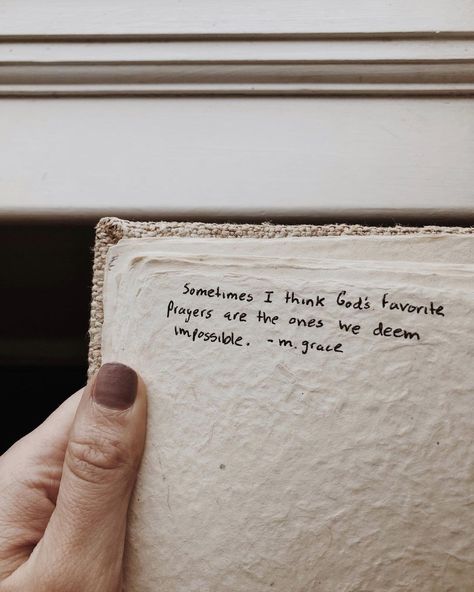 Sometimes I think God's favorite
Prayers are the ones we deem
impossible. - m. grace